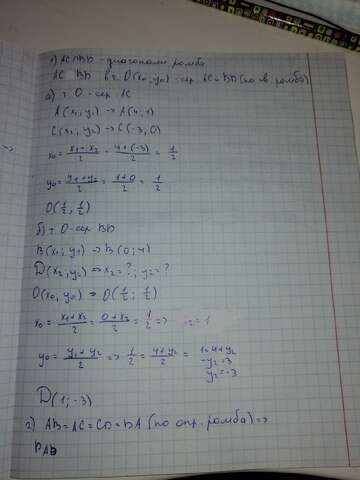 1) AC и BD - диагонали ромба
AC BD в т. O(x₀; y₀) - сер. AC и BD (по св. ромба)
а) т. O - сер. AC
A(x₁; y₁) → A(4; 1)
C(x₂; y₂) → C(-3; 0)
x₀ = (x₁ + x₂)/2 = (4 + (-3))/2 = 1/2
y₀ = (y₁ + y₂)/2 = (1 + 0)/2 = 1/2
O(1/2; 1/2)
б) т. O - сер. BD
B(x₁; y₁) → B(0; 4)
D(x₂; y₂) → x₂ = ?; y₂ = ?
O(x₀; y₀) → O(1/2; 1/2)
x₀ = (x₁ + x₂)/2 = (0 + x₂)/2 = 1/2 => x₂ = 1
y₀ = (y₁ + y₂)/2 => 1/2 = (4 + y₂)/2 = 1 = 4 + y₂
-y₂ = 3
y₂ = -3
D(1; -3)
2) AB = AC = CD = DA (по опр. ромба) =>